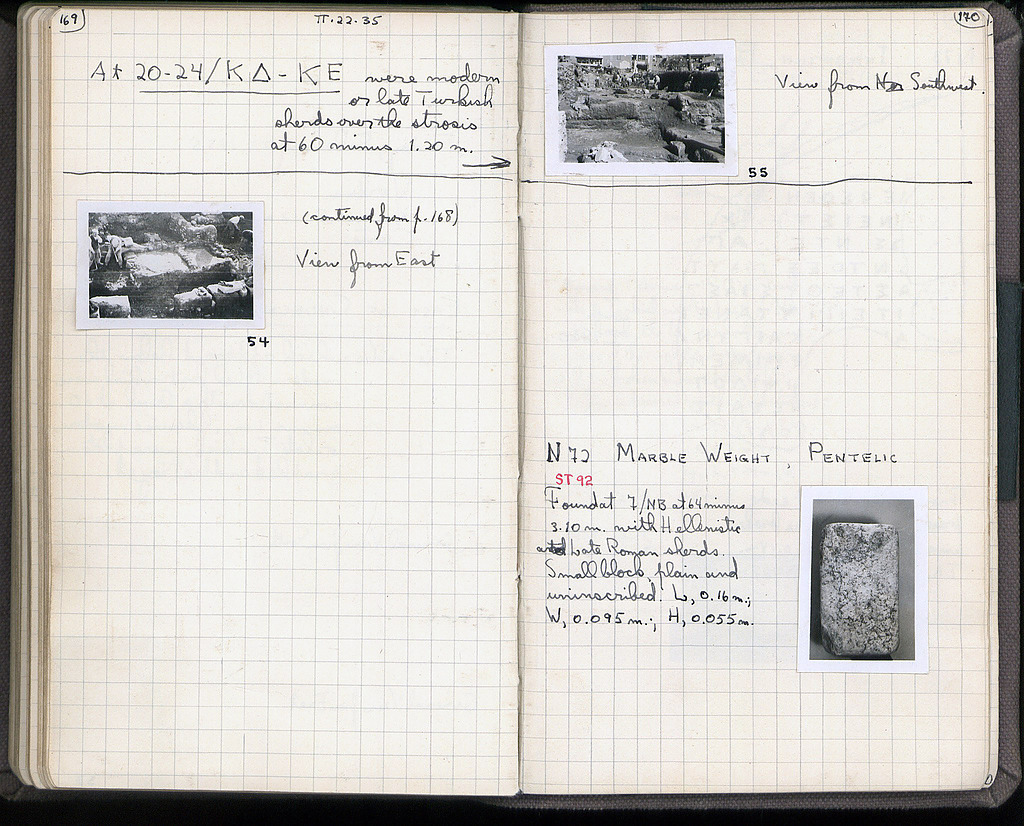 169
II.22.35
At 20-24/ΚΔ-ΚΕ were modern
or late Turkish
sherds over the strosis
at 60 minus 1.20 m.
(continued from p. 168)
View from East
54
170
View from Southwest.
55
N 72 MARBLE WEIGHT, PENTELIC
ST 92
Found at 7/ΝΒ at 64 minus
3.10 m. with Hellenistic
and Late Roman sherds.
Small block, plain and
uninscribed. L, 0.16 m.;
W, 0.095 m.; H, 0.055 m.